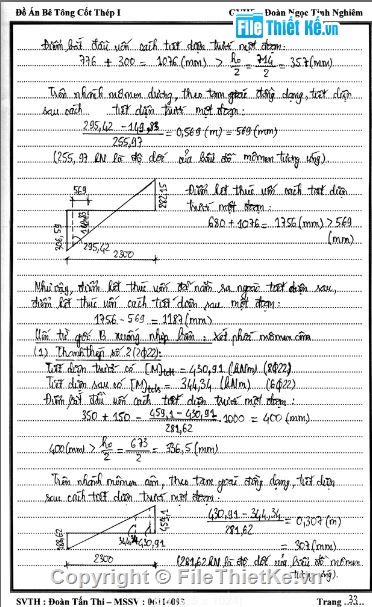 Đồ Án Bê Tông Cốt Thép I GVHD: Đoàn Ngọc Tịnh Nghiêm
FileThietKe.vn
Điểm bắt đầu uốn cách tiết diện trước một đoạn:
776 + 300 = 1076 (mm) > h₀/2 = 714/2 = 357 (mm)
Trên nhánh mômen dương, theo tam giác đồng dạng, tiết diện
sau cách tiết diện trước một đoạn:
(295,42 - 149,83)/255,97 = 0,569 (m) = 569 (mm)
(255,97 kN là độ dốc của biểu đồ mômen tương ứng).
569
282,15
306,59
295,42
2300
Điểm kết thúc uốn cách tiết diện
trước một đoạn:
680 + 1076 = 1756 (mm) > 569
(mm)
Như vậy, điểm kết thúc uốn đã nằm ra ngoài tiết diện sau,
điểm kết thúc uốn cách tiết diện sau một đoạn:
1756 - 569 = 1187 (mm)
Uốn từ gối B xuống nhịp biên: xét phía mômen âm
(1) Thanh thép số 2 (2Φ22):
Tiết diện trước có [M]tdt = 430,91 (kNm) (8Φ22)
Tiết diện sau có [M]tds = 344,34 (kNm) (6Φ22)
Điểm bắt đầu uốn cách tiết diện trước một đoạn:
350 + 150 - (459,1 - 430,91)/281,62 . 1000 = 400 (mm)
400 (mm) > h₀/2 = 673/2 = 336,5 (mm)
Trên nhánh mômen âm, theo tam giác đồng dạng, tiết diện
sau cách tiết diện trước một đoạn:
188,62
344,34
430,91
459,1
2300
(430,91 - 344,34)/281,62 = 0,307 (m)
= 307 (mm)
(281,62 kN là độ dốc của biểu đồ mômen
tương ứng).
Copyright © FileThietKe.vn
SVTH : Đoàn Tấn Thi – MSSV : Trang 33